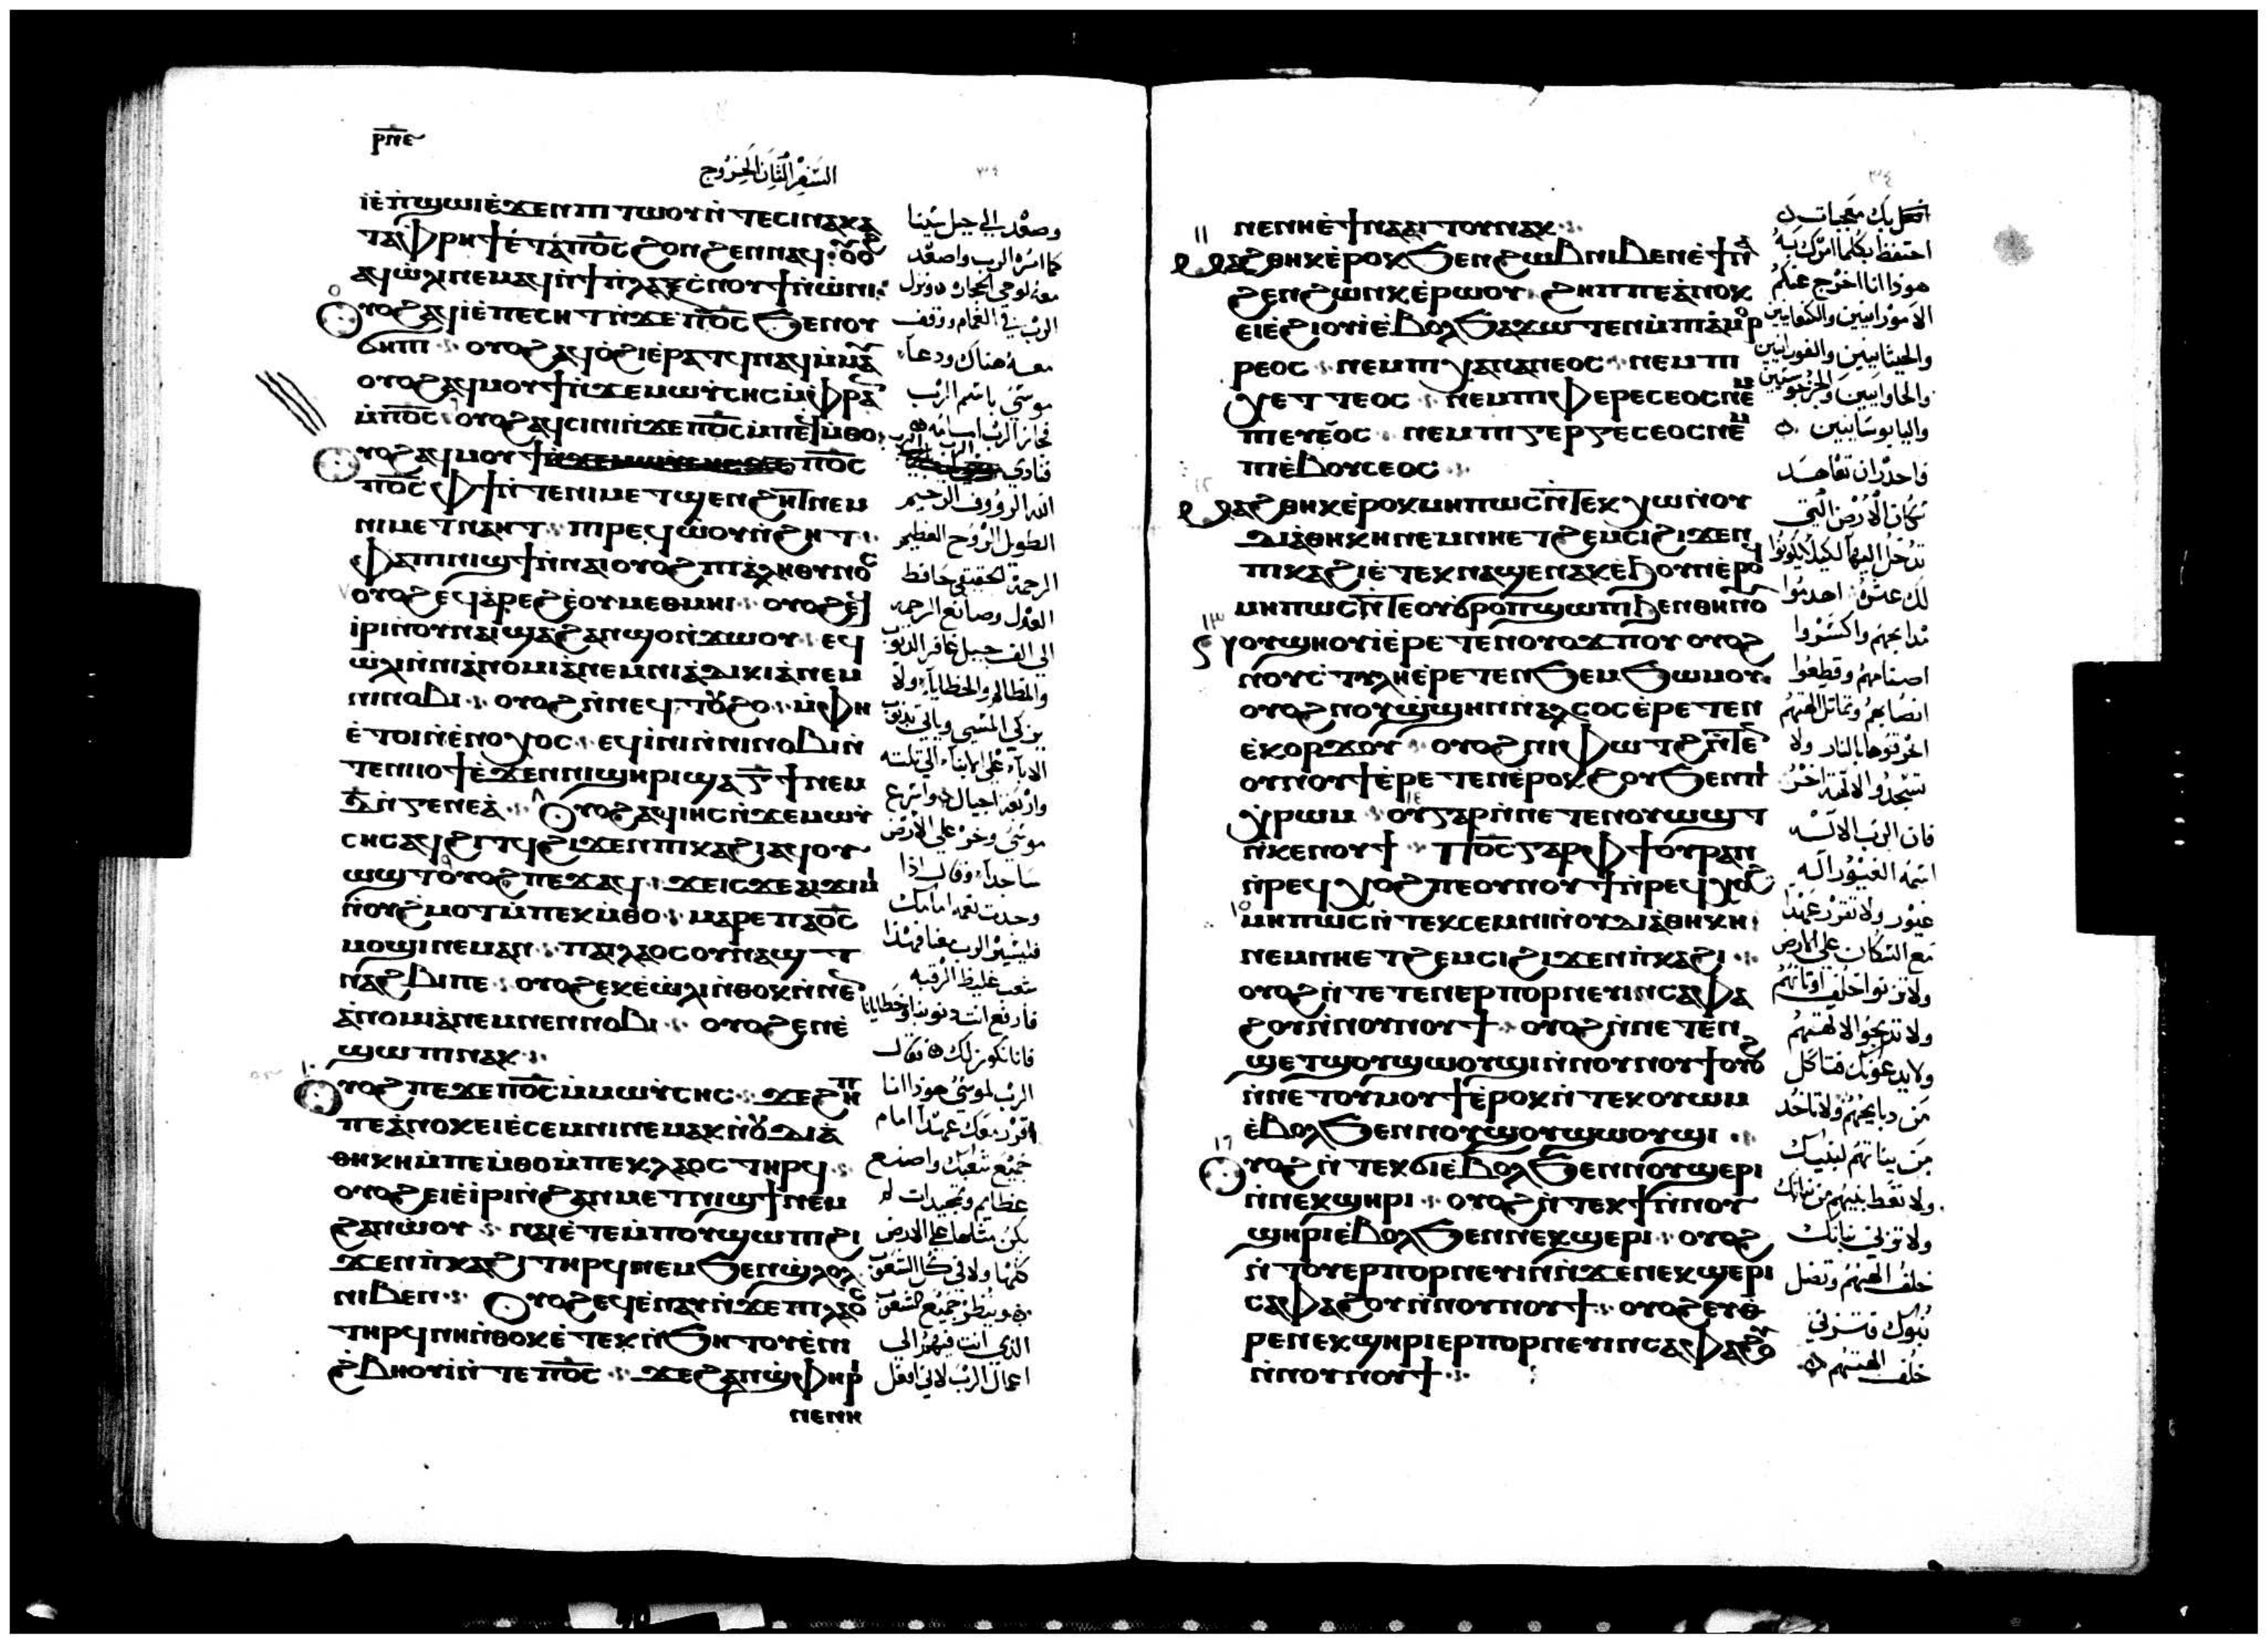 ⲣⲡⲉ
السفر الثان الخروج
ⲓⲉ̀ⲡϣⲱⲓⲉ̀ϫⲉⲛⲡⲓⲧⲱⲟⲩⲛ̀ⲧⲉⲥⲓⲛⲁⲕⲁ
ⲧⲁⲫⲣⲏϯⲉ̀ⲧⲁⲡⲟ̅ⲥ̅ϩⲟⲛϩⲉⲛⲛⲁϥ
ⲁϥⲱ̀ⲗⲓⲛⲉⲙⲁϥⲛ̀ϯⲡⲗⲁⲝⲥ̀ⲛⲟⲩϯⲛ̀ⲱ̀ⲛⲓ
ⲟⲩⲟϩⲁϥⲓ̀ⲉ̀ⲡⲉⲥⲏⲧⲛ̀ϫⲉⲡⲟ̅ⲥ̅ϧⲉⲛⲟⲩ
ϭⲏⲡⲓ ⲟⲩⲟϩⲁϥⲟ̀ϩⲓⲉ̀ⲣⲁⲧϥⲛⲁϥⲙ̀ⲙⲁ
ⲟⲩⲟϩⲁϥⲙⲟⲩϯⲛ̀ϫⲉⲙⲱⲩ̀ⲥⲏⲥⲙ̀ⲫⲣⲁ
ⲙ̀ⲡⲟ̅ⲥ̅ ⲟⲩⲟϩⲁϥⲥⲓⲛⲓⲛ̀ϫⲉⲡⲟ̅ⲥ̅ⲙ̀ⲡⲉϥⲙ̀ⲑⲟ
ⲟⲩⲟϩⲁϥⲙⲟⲩϯ ⲡⲟ̅ⲥ̅
ⲡⲟ̅ⲥ̅ⲫϯⲛ̀ⲧⲉⲛⲓⲙⲉⲧϣⲉⲛϩⲏⲧⲛⲉⲙ
ⲛⲓⲙⲉⲧⲛⲁⲏⲧ ⲡⲓⲣⲉϥⲱ̀ⲟⲩⲛ̀ϩⲏⲧ
ⲫⲁⲡⲓⲛⲓϣϯⲛ̀ⲛⲁⲓⲟⲩⲟϩⲡⲓⲁ̀ⲗⲏⲑⲓⲛⲟⲥ
ⲟⲩⲟϩⲉϥⲁ̀ⲣⲉϩⲉ̀ⲟⲩⲙⲉⲑⲙⲏⲓ ⲟⲩⲟϩⲉϥ
ⲓ̀ⲣⲓⲛ̀ⲟⲩⲛⲁⲓϣⲁϩⲁⲛϣⲟⲛ̀ϫⲱⲟⲩ ⲉϥ
ⲱ̀ⲗⲓⲛ̀ⲛⲓⲁ̀ⲛⲟⲙⲓⲁ̀ⲛⲉⲙⲛⲓⲁ̀ⲇⲓⲕⲓⲁ̀ⲛⲉⲙ
ⲛⲓⲛⲟⲃⲓ ⲟⲩⲟϩⲛ̀ⲛⲉϥⲧⲟⲩⲃⲟ ⲙ̀ⲫⲏ
ⲉ̀ⲧⲟⲓⲛ̀ⲉ̀ⲛⲟⲭⲟⲥ ⲉϥⲓ̀ⲛⲓⲛ̀ⲛⲓⲛⲟⲃⲓⲛ̀
ⲧⲉⲛⲓⲟϯⲉ̀ϫⲉⲛⲛⲓϣⲏⲣⲓϣⲁⲅ̅ϯⲛⲉⲙ
ⲇ̅ⲛ̀ⲅⲉⲛⲉⲁ̀ ⲟⲩⲟϩⲁϥⲓⲏⲥⲛ̀ϫⲉⲙⲱⲩ̀
ⲥⲏⲥⲁϥϩⲓⲧϥϩⲓϫⲉⲛⲡⲓⲕⲁϩⲓⲁϥⲟⲩ
ⲱϣⲧⲟⲩⲟϩⲡⲉϫⲁϥ ϫⲉⲓⲥϫⲉⲁⲓϫⲓⲙⲓ
ⲛ̀ⲟⲩϩ̀ⲙⲟⲧⲙ̀ⲡⲉⲕⲙ̀ⲑⲟ ⲙⲁⲣⲉⲡⲁⲟ̅ⲥ̅
ⲙⲟϣⲓⲛⲉⲙⲁⲛ ⲡⲁⲓⲗⲁⲟⲥⲟⲩⲛⲁϣⲧ
ⲛ̀ⲁϩⲃⲓⲡⲉ ⲟⲩⲟϩⲉⲕⲉ̀ⲱ̀ⲗⲓⲛ̀ⲑⲟⲕⲛ̀ⲛⲉⲛ
ⲁ̀ⲛⲟⲙⲓⲁ̀ⲛⲉⲙⲛⲉⲛⲛⲟⲃⲓ ⲟⲩⲟϩⲉⲛⲉ̀
ϣⲱⲡⲓⲛⲁⲕ
ⲟⲩⲟϩⲡⲉϫⲉⲡⲟ̅ⲥ̅ⲙ̀ⲙⲱⲩ̀ⲥⲏⲥ ϫⲉϩⲏⲡ
ⲡⲉⲁ̀ⲛⲟⲕⲉⲓⲉ̀ⲥⲉⲙⲛⲓⲛⲉⲙⲁⲕⲛ̀ⲟⲩⲇⲓⲁ̀
ⲑⲏⲕⲏⲙ̀ⲡⲉⲙ̀ⲑⲟⲙ̀ⲡⲉⲕⲗⲁⲟⲥⲧⲏⲣϥ
ⲟⲩⲟϩⲉⲓⲉ̀ⲓ̀ⲣⲓⲛ̀ϩⲁⲛⲙⲉⲧⲛⲓϣϯⲛⲉⲙ
ϩⲁⲛⲱ̀ⲟⲩ ⲛⲁⲓⲉ̀ⲧⲉⲙ̀ⲡⲟⲩϣⲱⲡⲓϩⲓ
ϫⲉⲛⲡ̀ⲕⲁϩⲓⲧⲏⲣϥⲛⲉⲙϧⲉⲛϣ̀ⲗⲟⲗ
ⲛⲓⲃⲉⲛ ⲟⲩⲟϩⲉϥⲉ̀ⲛⲁⲩⲛ̀ϫⲉⲡⲓⲗⲁⲟⲥ
ⲧⲏⲣϥⲛⲏⲛ̀ⲑⲟⲕⲉ̀ⲧⲉⲕⲛ̀ϧⲏⲧⲟⲩⲉ̀ⲛⲓ
ϩ̀ⲃⲏⲟⲩⲓ̀ⲛ̀ⲧⲉⲡⲟ̅ⲥ̅ ϫⲉϩⲁⲛϣ̀ⲫⲏⲣ
ⲛⲉⲛⲏ
وصعد الي جبل سينا
كما امره الرب واصعد
معه لوحي الحجاره ونزل
الرب في الغمام ووقف
معه هناك ودعا
موسي باسم الرب
فجاز الرب امامه
فنادي
الله الرووف الرحيم
الطويل الروح العظيم
الرحمة الحقيقي حافظ
العدل وصانع الرحمه
الي الف جيل غافر الذنوب
والمظالم والخطايا ولا
يزكي المسي وياتي بذنوب
الاباء علي الابناء الي ثلثه
واربعه اجيال واسرع
موسي وخر علي الارض
ساجدا وقال اذا
وجدت نعمه امامك
فليسير الرب معنا فهذا
شعب غليظ الرقبه
فارفع انت ذنوبنا وخطايانا
فانا نكون لك فقال
الرب لموسي هوذا انا
اقرر معك عهدا امام
جميع شعبك واصنع
عظايم وتمجيدات لم
يكن مثلها علي الارض
كلها ولا في كل الشعوب
وينظر جميع الشعوب
الذي انت فيهم الي
اعمال الرب لاني افعل
ⲛⲉⲛⲏⲉ̀ϯⲛⲁⲁⲓⲧⲟⲩⲛⲁⲕ
ⲙⲁϩⲑⲏⲕⲉ̀ⲣⲟⲕϧⲉⲛϩⲱⲃⲛⲓⲃⲉⲛⲉ̀ϯⲛⲁ
ϩⲉⲛϩⲱⲛⲕⲉ̀ⲣⲱⲟⲩ ϩⲏⲡⲡⲉⲁ̀ⲛⲟⲕ
ⲉⲓⲉ̀ϩⲓⲟⲩⲓ̀ⲉ̀ⲃⲟⲗϧⲁϫⲱⲧⲉⲛⲙ̀ⲡⲓⲁ̀ⲙⲟⲣ
ⲣⲉⲟⲥ ⲛⲉⲙⲡⲓⲭⲁⲛⲁⲛⲉⲟⲥ ⲛⲉⲙⲡⲓ
ⲭⲉⲧⲧⲉⲟⲥ ⲛⲉⲙⲡⲓⲫⲉⲣⲉⲥⲉⲟⲥⲛⲉⲙ
ⲡⲓⲉⲩⲉⲟⲥ ⲛⲉⲙⲡⲓⲅⲉⲣⲅⲉⲥⲉⲟⲥⲛⲉⲙ
ⲡⲓⲉ̀ⲃⲟⲩⲥⲉⲟⲥ
ⲙⲁϩⲑⲏⲕⲉ̀ⲣⲟⲕⲙⲏⲡⲱⲥⲛ̀ⲧⲉⲕⲭⲱⲛ̀ⲟⲩ
ⲇⲓⲁ̀ⲑⲏⲕⲏⲛⲉⲙⲛⲏⲉⲧϩⲉⲙⲥⲓϩⲓϫⲉⲛ
ⲡⲓⲕⲁϩⲓⲉ̀ⲧⲉⲕⲛⲁϣⲉⲛⲁⲕⲉ̀ϧⲟⲩⲛⲉ̀ⲣⲟϥ
ⲙⲏⲡⲱⲥⲛ̀ⲧⲉⲟⲩϭⲣⲟⲡϣⲱⲡⲓϧⲉⲛⲑⲏⲛⲟⲩ
ⲛⲟⲩϣⲏⲟⲩⲓ̀ⲉ̀ⲣⲉⲧⲉⲛⲟⲩⲟϫⲡⲟⲩ ⲟⲩⲟϩ
ⲛⲟⲩⲥ̀ⲧⲩⲗⲏⲉ̀ⲣⲉⲧⲉⲛϧⲉⲙϧⲱⲙⲟⲩ
ⲟⲩⲟϩⲛⲟⲩϣ̀ϣⲏⲛⲛ̀ⲁⲗⲥⲟⲥⲉ̀ⲣⲉⲧⲉⲛ
ⲉ̀ⲕⲟⲣϫⲟⲩ ⲟⲩⲟϩⲛⲓⲫⲱⲧϩⲛ̀ⲧⲉ
ⲟⲩⲛⲟⲩϯⲉ̀ⲣⲉⲧⲉⲛⲉ̀ⲣⲟⲕϩⲟⲩϧⲉⲛⲡⲓ
ⲭ̀ⲣⲱⲙ ⲟⲩⲅⲁⲣⲛ̀ⲛⲉⲧⲉⲛⲟⲩⲱϣⲧ
ⲛ̀ⲕⲉⲛⲟⲩϯ ⲡⲟ̅ⲥ̅ⲅⲁⲣⲫϯⲟⲩⲣⲁⲛ
ⲛ̀ⲣⲉϥⲭⲟϩⲡⲉⲟⲩⲛⲟⲩϯⲛ̀ⲣⲉϥⲭⲟϩ
ⲙⲏⲡⲱⲥⲛ̀ⲧⲉⲕⲥⲉⲙⲛⲓⲛ̀ⲟⲩⲇⲓⲁ̀ⲑⲏⲕⲏ
ⲛⲉⲙⲛⲏⲉⲧϩⲉⲙⲥⲓϩⲓϫⲉⲛⲡ̀ⲕⲁϩⲓ
ⲟⲩⲟϩⲛ̀ⲧⲉⲧⲉⲛⲉⲣⲡⲟⲣⲛⲉⲩⲓⲛⲥⲁⲫⲁ
ϩⲟⲩⲛ̀ⲛⲟⲩⲛⲟⲩϯ ⲟⲩⲟϩⲛ̀ⲛⲉⲧⲉⲛ
ϣⲉⲧϣⲟⲩϣⲱⲟⲩϣⲓⲛ̀ⲛⲟⲩⲛⲟⲩϯⲟⲩⲟϩ
ⲛ̀ⲛⲉⲧⲟⲩⲙⲟⲩϯⲉ̀ⲣⲟⲕⲛ̀ⲧⲉⲕⲟⲩⲱⲙ
ⲉ̀ⲃⲟⲗϧⲉⲛⲛⲟⲩϣⲟⲩϣⲱⲟⲩϣⲓ
ⲟⲩⲟϩⲛ̀ⲧⲉⲕϭⲓⲉ̀ⲃⲟⲗϧⲉⲛⲛⲟⲩϣⲉⲣⲓ
ⲛ̀ⲛⲉⲕϣⲏⲣⲓ ⲟⲩⲟϩⲛ̀ⲧⲉⲕϯⲛ̀ⲛⲟⲩ
ϣⲏⲣⲓⲉ̀ⲃⲟⲗϧⲉⲛⲛⲉⲕϣⲉⲣⲓ ⲟⲩⲟϩ
ⲛ̀ⲧⲟⲩⲉⲣⲡⲟⲣⲛⲉⲩⲓⲛ̀ⲛ̀ϫⲉⲛⲉⲕϣⲉⲣⲓ
ⲥⲁⲫⲁϩⲟⲩⲛ̀ⲛⲟⲩⲛⲟⲩϯ ⲟⲩⲟϩⲉⲩⲑ
ⲣⲉⲛⲉⲕϣⲏⲣⲓⲉⲣⲡⲟⲣⲛⲉⲩⲓⲛⲥⲁⲫⲁϩⲟⲩ
ⲛ̀ⲛⲟⲩⲛⲟⲩϯ
افعل بك معجبات
احتفظ بكلما امرك به
هوذا انا اخرج عنكم
الامورانيين والكنعانيين
والحيثانيين والفورانيين
والحاوانيين والجرجوسيين
واليابوسانيين
فاحذر ان تعاهد
سكان الارض التي
تدخل اليها لكيلا يكونوا
لك عثره اهدموا
مذابحهم واكسروا
اصنامهم وقطعوا
انصابهم وتماثيل الهتهم
احرقوها بالنار ولا
تسجدوا لالهة اخر
فان الرب الاله
اسمه الغيور اله
غيور ولا تقرر عهدا
مع السكان علي الارض
ولا تزنوا خلف اوثانهم
ولا تذبحوا لالهتهم
ولا يدعونك فتاكل
من دبايحهم ولا تاخد
من بناتهم لبنيك
ولا تعط بنيهم من بناتك
ولا تزني بناتك
خلف الهتهم وتضل
بنوك فتزني
خلف الهتهم